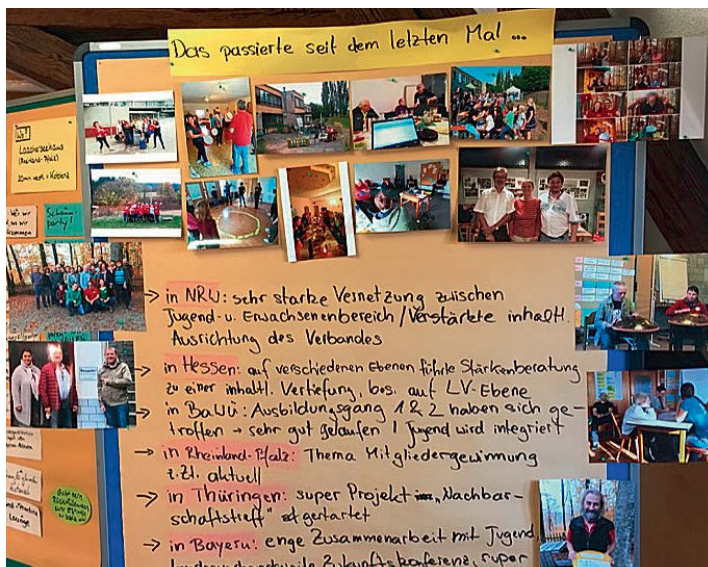 Das passierte seit dem letzten Mal ...
Wo?
(Rheinland-Pfalz)
→ in NRW: sehr starke Vernetzung zwischen
Jugend- u. Erwachsenenbereich / Verstärkte inhaltl.
Ausrichtung des Verbandes
→ in Hessen: auf verschiedenen Ebenen führte Stärkenberatung
zu einer inhaltl. Vertiefung, bes. auf LV-Ebene
→ in BaWü: Ausbildungsgang 1 & 2 haben sich ge-
troffen → sehr gut gelaufen / Jugend wird integriert
→ in Rheinland-Pfalz: Thema Mitgliedergewinnung
z.Zt. aktuell
→ in Thüringen: super Projekt „Nachbar-
schaftstreff" gestartet
→ in Bayern: enge Zusammenarbeit mit Jugend
Zukunftskonferenz, super